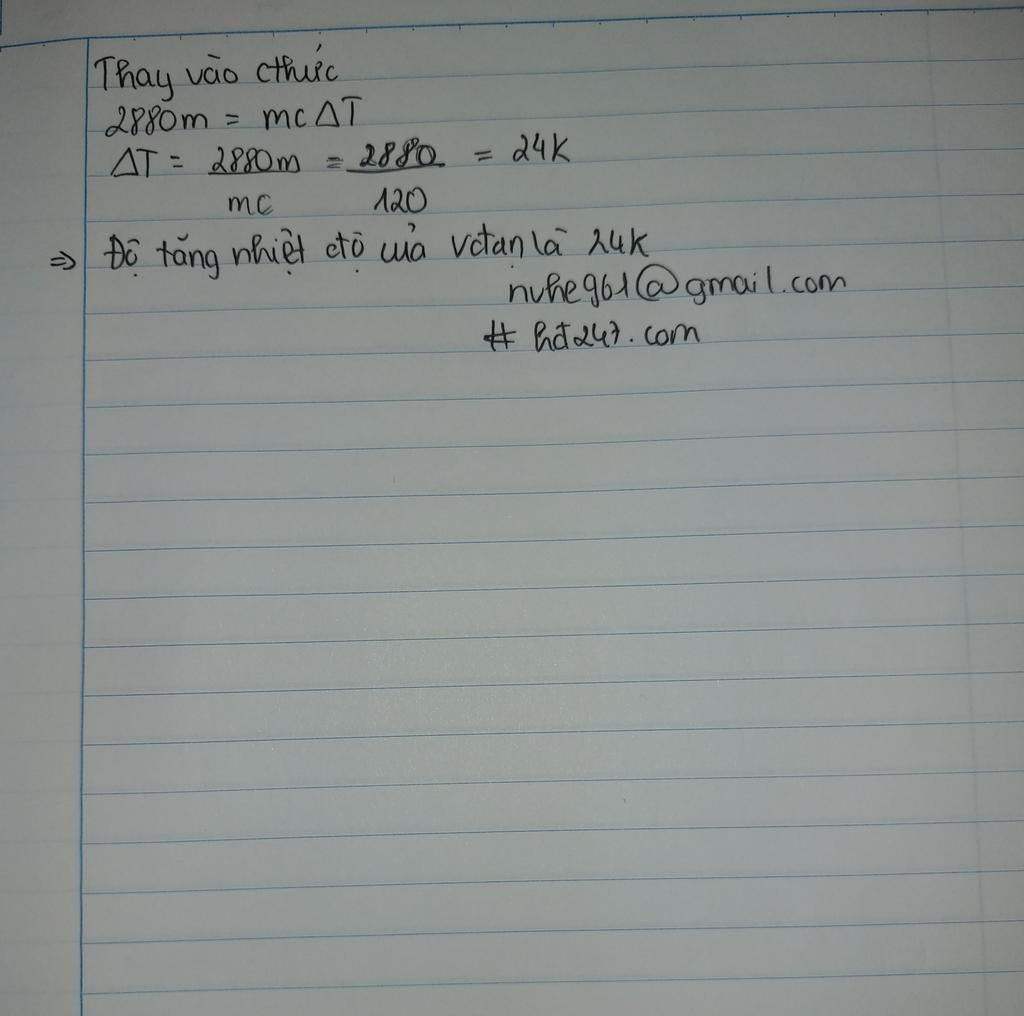 Thay vào cthức
2880m = mcΔT
ΔT = 2880m / mc = 2880 / 120 = 24K
⇒ Độ tăng nhiệt độ của vđạn là 24K
nvhe961@gmail.com
# hđ247.com